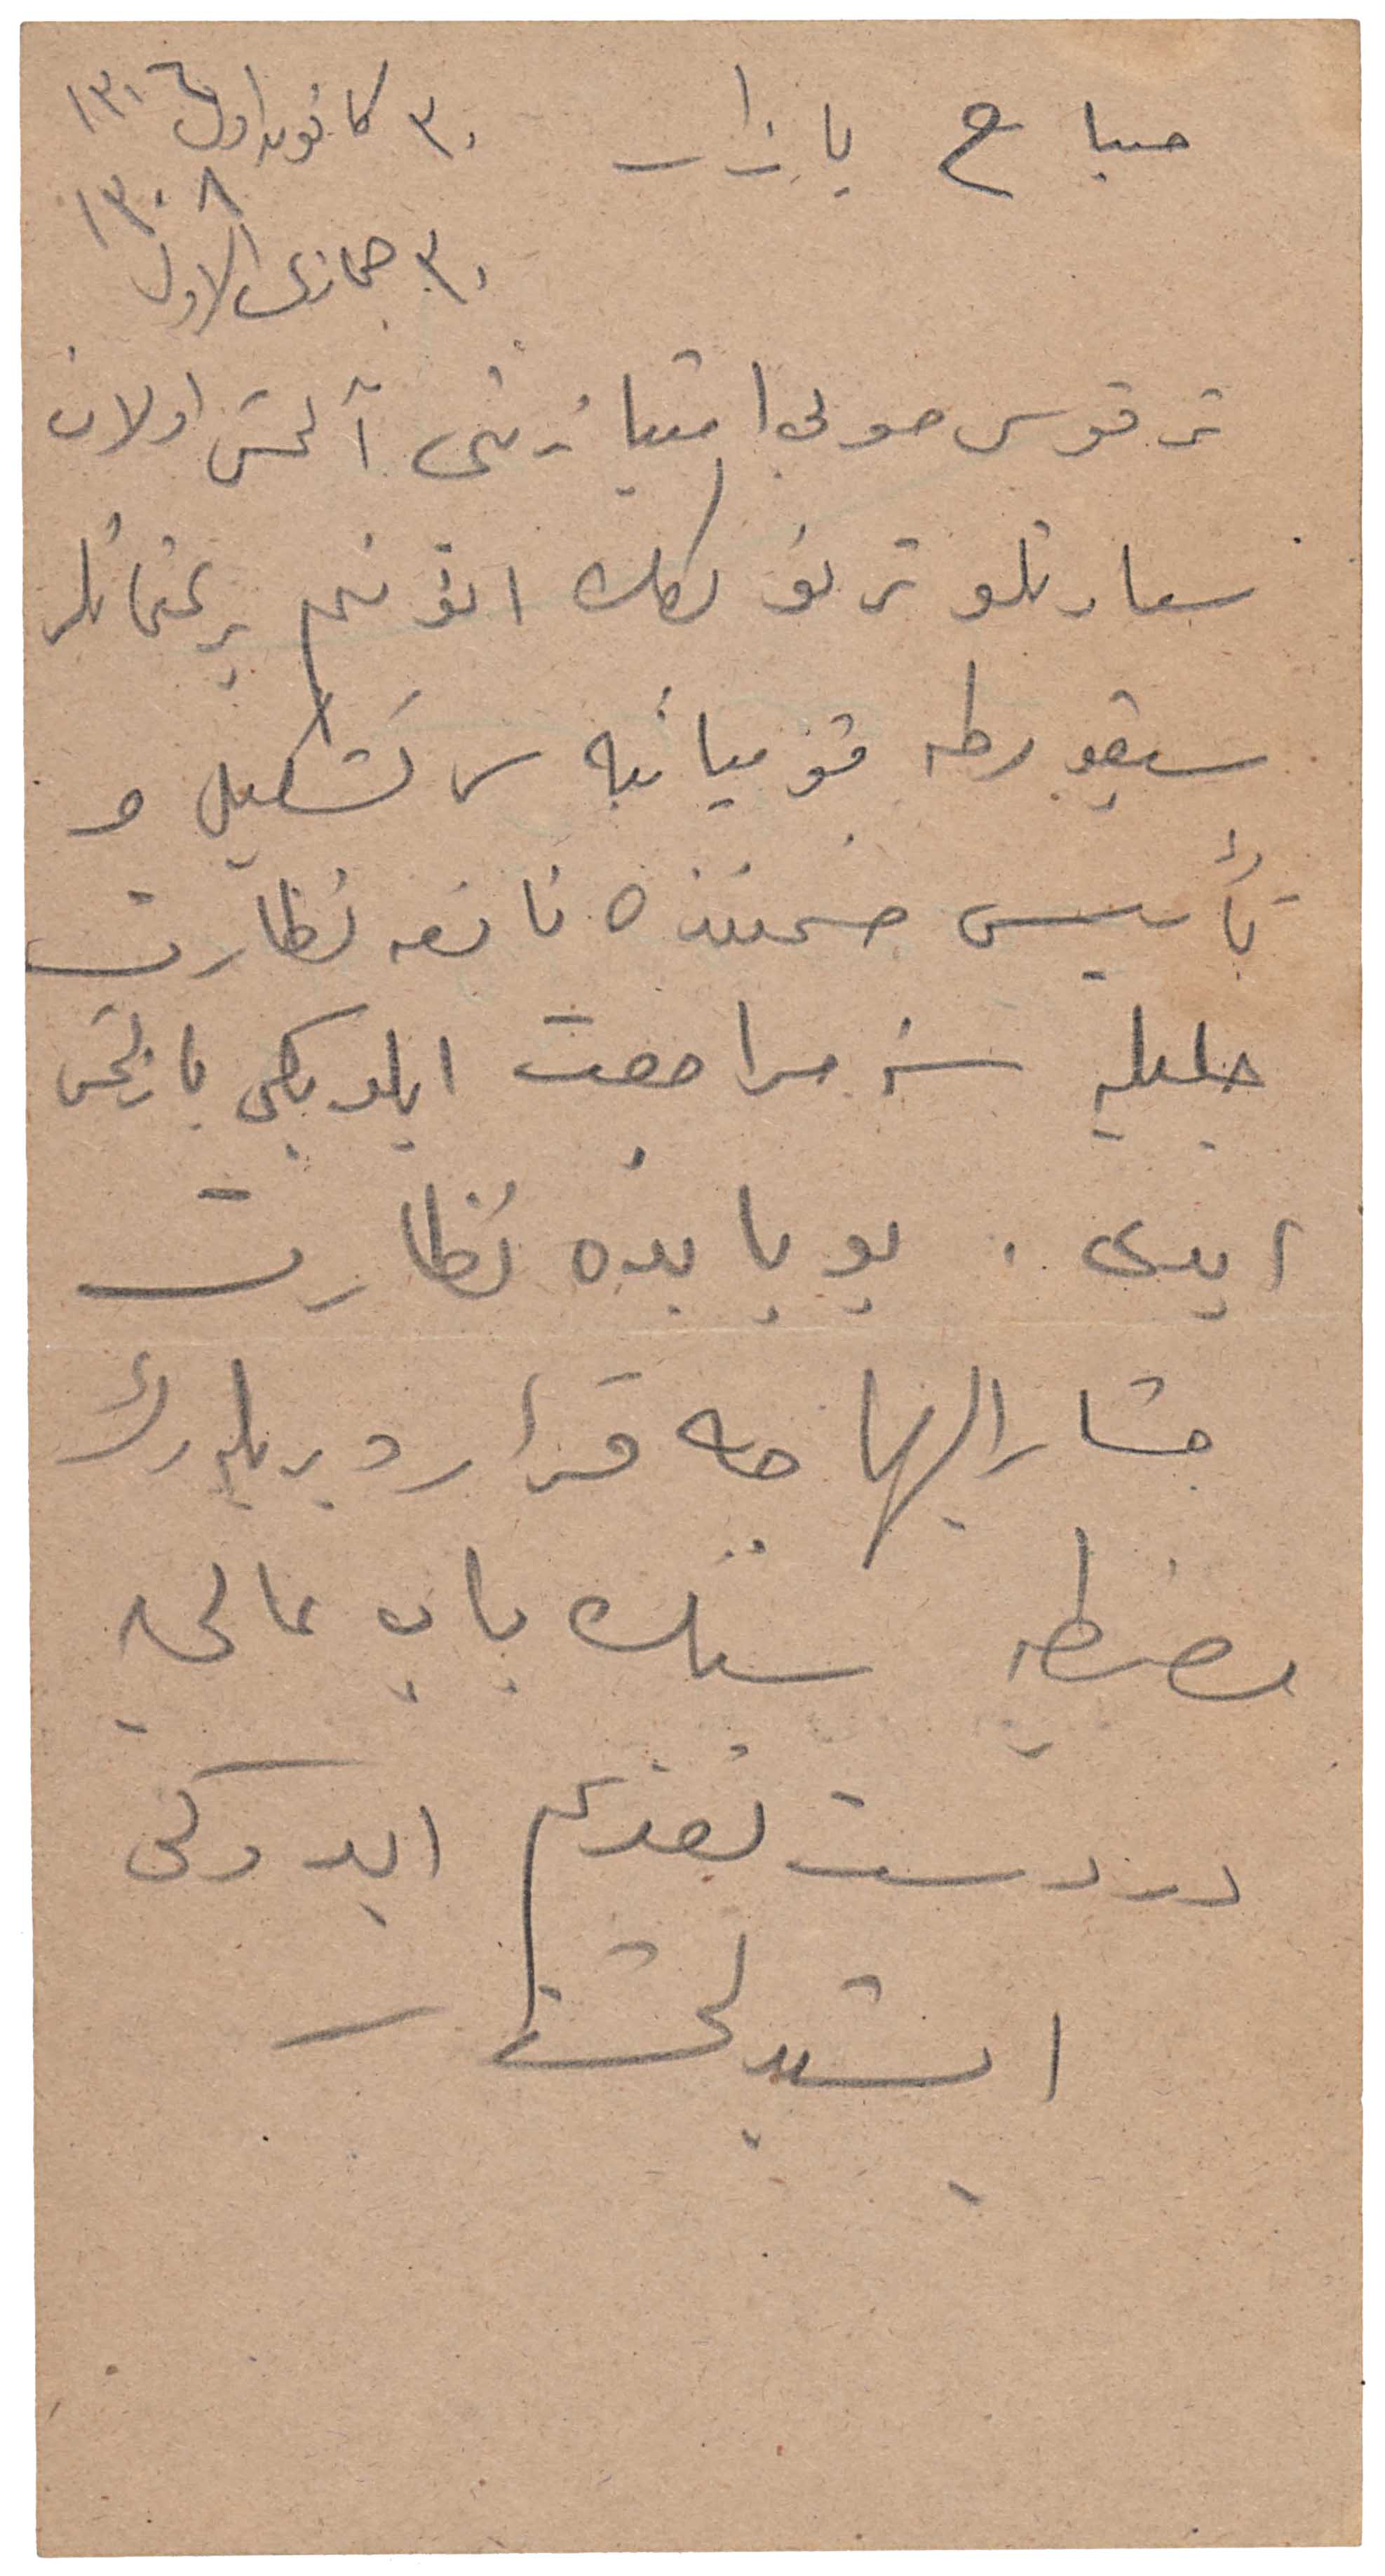 صباح پازار ٣٠ كانون اول ١٣٠٦
١٣٠٨
٣٠ جمازی الاول
ترقوس صولی امتیازینی آلمش اولان
سعادتلو ترنو بك افندینك بر عثمانلی
سیغورطه قومپانیه سی تشكیل و
تأسیسی ضمننده نافعه نظارت
جلیله سنه مراجعت ایلدیكی یازلمش
ایدی . بو بابده نظارت
مشار الیهاجه قرار ویریله رك
مضبطه سنك باب عالی یه
دردست تقدیم ایدوكی
ایشیدلمشدر